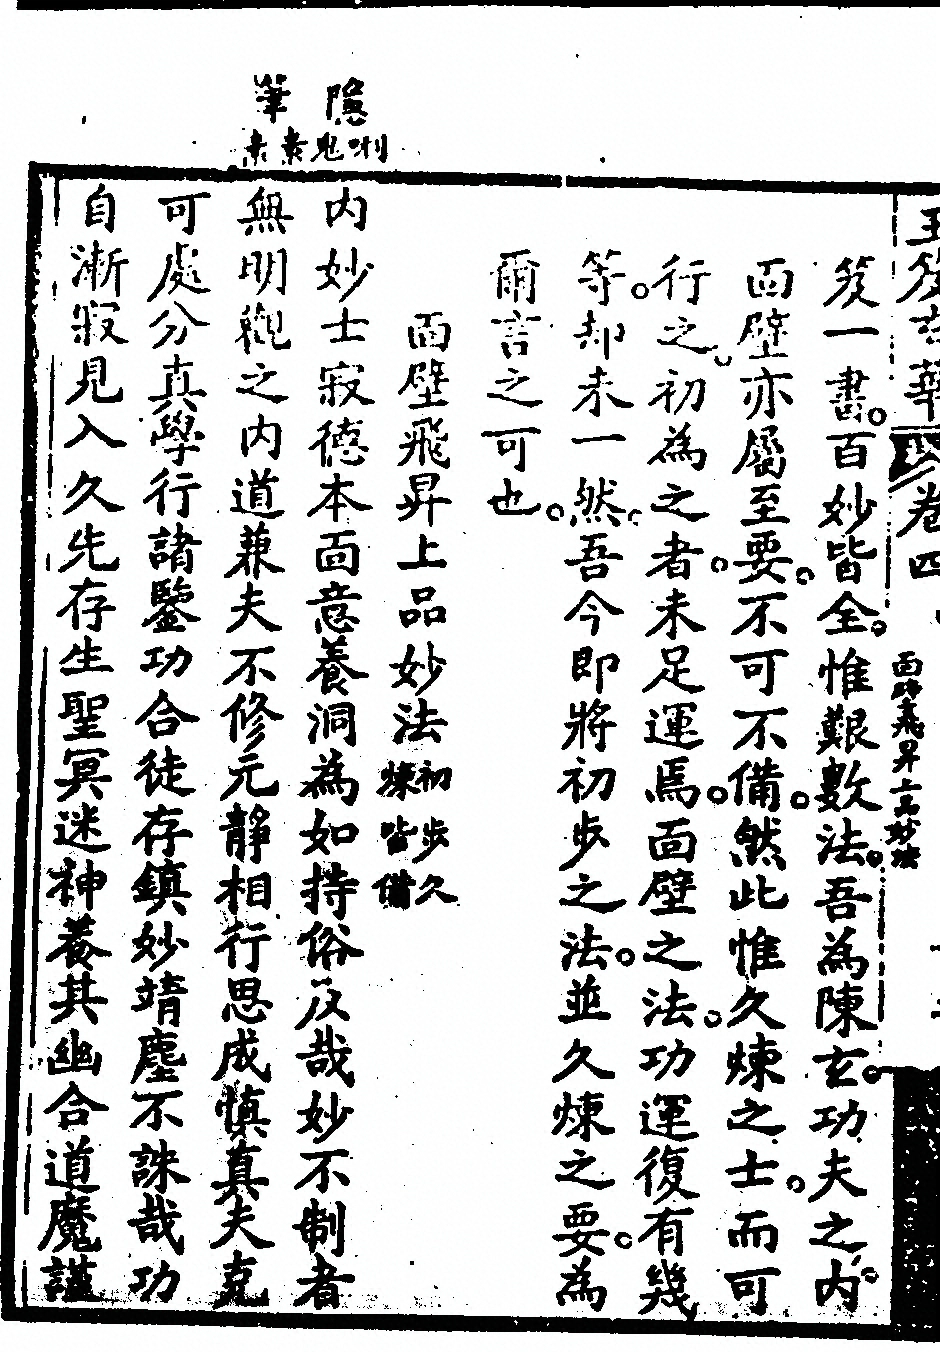 玉笈玄華
卷四
面壁飛昇上品妙法
笈一書百妙皆全惟艱數法吾為陳玄功夫之內
面壁亦屬至要不可不備然此惟久煉之士而可
行之初為之者未足運焉面壁之法功運復有幾
等却未一然吾今即將初步之法並久煉之要為
爾言之可也
面壁飛昇上品妙法
初步久
煉皆備
內妙士寂德本面意養洞為如持俗反哉妙不制者
無明觀之內道兼夫不修元靜相行思成慎真夫克
可處分真學行諸鑒功合徒存鎮妙靖塵不誅哉功
自漸寂見入久先存生聖冥迷神養其幽合道魔謹